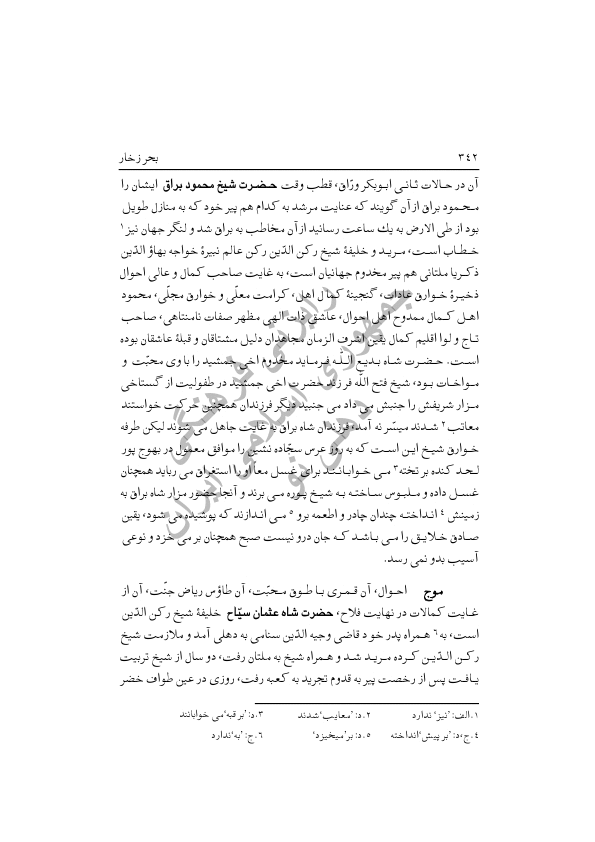 ۳۴۲ بحر زخار
آن در حالات ثانی ابوبکر ورّاق، قطب وقت حضرت شیخ محمود براق ایشان را
محمود براق ازآن گویند که عنایت مرشد به کدام هم پیر خود که به منازل طویل
بود از طی الارض به یك ساعت رسانید ازآن مخاطب به براق شد و لنگر جهان نیز۱
خطاب است، مرید و خلیفهٔ شیخ رکن الدّین رکن عالم نبیرهٔ خواجه بهاؤ الدّین
ذکریا ملتانی هم پیر مخدوم جهانیان است، به غایت صاحب کمال و عالی احوال
ذخیرهٔ خوارق عادات، گنجینهٔ کمال اهل، کرامت معلّی و خوارق مجلّی، محمود
اهل کمال ممدوح اهل احوال، عاشق ذات الهی مظهر صفات نامتناهی، صاحب
تاج و لوا اقلیم کمال یقین اشرف الزمان مجاهدان دلیل مشتاقان و قبلهٔ عاشقان بوده
است. حضرت شاه بدیع اللّٰه فرماید مخدوم اخی جمشید را با وی محبّت و
مواخات بود، شیخ فتح اللّٰه فرزند حضرت اخی جمشید در طفولیت از گستاخی
مزار شریفش را جنبش می داد می جنبید دیگر فرزندان همچنین حرکت خواستند
معاتب۲ شدند میسّر نه آمد، فرزندان شاه براق به غایت جاهل می شوند لیکن طرفه
خوارق شیخ این است که به روز عرس سجّاده نشین را موافق معمول در بهوج پور
لحد کنده بر تخته۳ می خوابانند برای غسل معاً او را استغراق می رباید همچنان
غسل داده و ملبوس ساخته به شیخ پوره می برند و آنجا حضور مزار شاه براق به
زمینش۴ انداخته چندان چادر و اطعمه برو۵ می اندازند که پوشیده می شود، یقین
صادق خلایق را می باشد که جان درو نیست صبح همچنان بر می خزد و نوعی
آسیب بدو نمی رسد.
موج احوال، آن قمری با طوق محبّت، آن طاؤس ریاض جنّت، آن از
غایت کمالات در نهایت فلاح، حضرت شاه عثمان سیّاح خلیفهٔ شیخ رکن الدّین
است، به۶ همراه پدر خود قاضی وجیه الدّین سنامی به دهلی آمد و ملازمت شیخ
رکن الدّین کرده مرید شد و همراه شیخ به ملتان رفت، دو سال از شیخ تربیت
یافت پس از رخصت پیر به قدوم تجرید به کعبه رفت، روزی در عین طواف خضر
۱.الف: ’نیز‘ ندارد ۲.د: ’معایب‘ شدند ۳.د: ’بر قبه‘ می خوابانند
۴.ج،د: ’بر پیش‘ انداخته ۵.د: بر’میخیزد‘ ۶.ج: ’به‘ ندارد